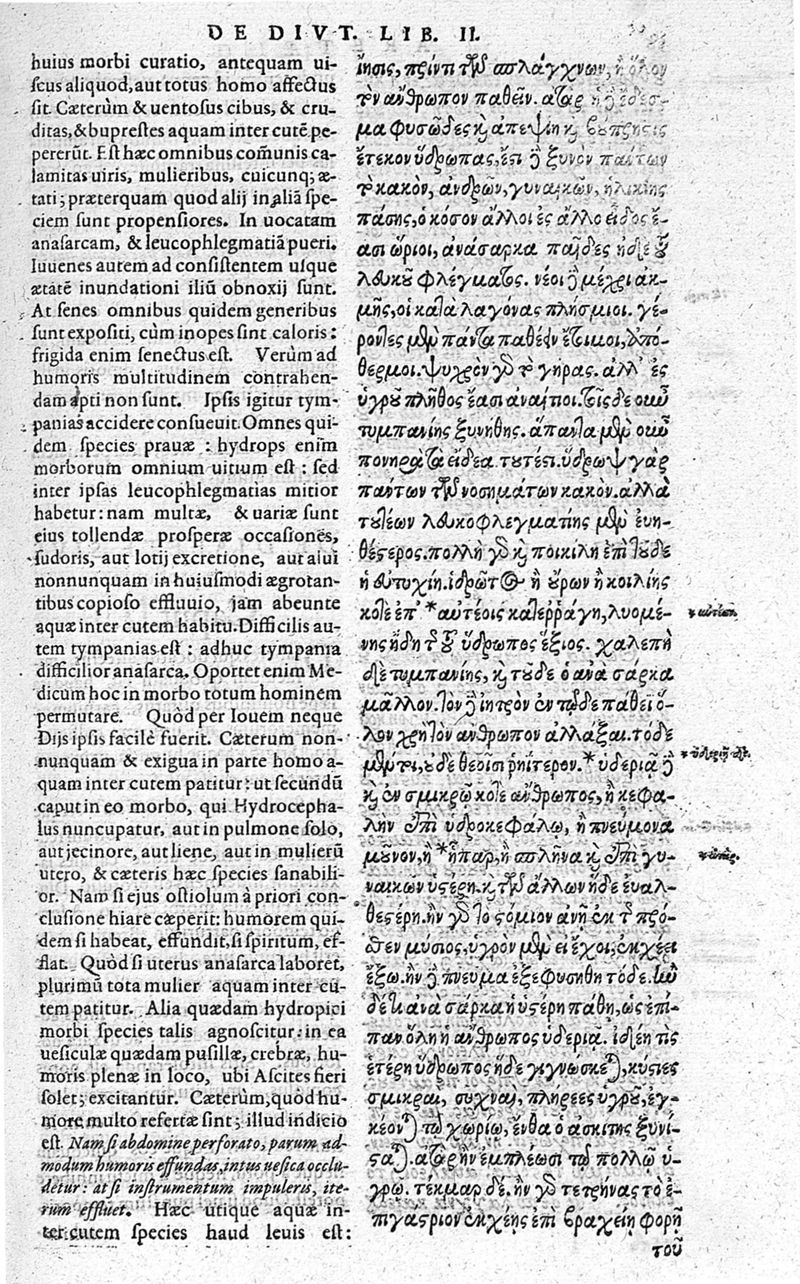 DE DIVT. LIB. II.
huius morbi curatio, antequam ui-
scus aliquod, aut totus homo affectus
sit. Cæterùm & uentosus cibus, & cru-
ditas, & buprestes aquam inter cutē pe-
pererūt. Est hæc omnibus com̄unis ca-
lamitas uiris, mulieribus, cuicunq; æ-
tati; præterquam quod alij in aliā spe-
ciem sunt propensiores. In uocatam
anasarcam, & leucophlegmatiā pueri.
Iuuenes autem ad consistentem usque
ætatē inundationi iliū obnoxij sunt.
At senes omnibus quidem generibus
sunt expositi, cùm inopes sint caloris:
frigida enim senectus est. Verùm ad
humoris multitudinem contrahen-
dam apti non sunt. Ipsis igitur tym-
panias accidere consueuit. Omnes qui-
dem species prauæ : hydrops enim
morborum omnium uitium est : sed
inter ipsas leucophlegmatias mitior
habetur: nam multæ, & uariæ sunt
eius tollendæ prosperæ occasiones,
sudoris, aut lotij excretione, aut alui
nonnunquam in huiusmodi ægrotan-
tibus copioso effluuio, jam abeunte
aquæ inter cutem habitu. Difficilis au-
tem tympanias est : adhuc tympania
difficilior anasarca. Oportet enim Me-
dicum hoc in morbo totum hominem
permutare. Quòd per Iouem neque
Dijs ipsis facilè fuerit. Cæterum non-
nunquam & exigua in parte homo a-
quam inter cutem patitur: ut secundū
caput in eo morbo, qui Hydrocepha-
lus nuncupatur, aut in pulmone solo,
aut jecinore, aut liene, aut in mulierū
utero, & cæteris hæc species sanabili-
or. Nam si ejus ostiolum à priori con-
clusione hiare cæperit: humorem qui-
dem si habeat, effundit, si spiritum, ef-
flat. Quòd si uterus anasarca laboret,
plurimū tota mulier aquam inter cu-
tem patitur. Alia quædam hydropici
morbi species talis agnoscitur: in ea
uesiculæ quædam pusillæ, crebræ, hu-
moris plenæ in loco, ubi Ascites fieri
solet; excitantur. Cæterum, quòd hu-
more multo refertæ sint; illud indicio
est. Nam si abdomine perforato, parum ad-
modum humoris effundas, intus uesica occlu-
detur: at si instrumentum impuleris, ite-
rum effluet. Hæc utique aquæ in-
ter cutem species haud leuis est:
ἴησις, πρὶν τῶν σπλάγχνων, ἢ ὅλον
τὸν ἄνθρωπον παθεῖν. ἀτὰρ ἠδὲ ἔδεσ-
μα φυσῶδες καὶ ἀπεψίη καὶ βούπρησις
ἔτεκον ὕδρωπας, ἔτι δὲ ξυνὸν πάντων
τὸ κακὸν, ἀνδρῶν, γυναικῶν, ἡλικίης
πάσης, ὁκόσον ἄλλοι ἐς ἄλλο εἶδος ἔ-
ασι ὥριοι, ἀνάσαρκα παῖδες ἠδὲ τοῦ
λευκοῦ φλέγματος. νέοι δὲ μέχρι ἀκ-
μῆς, οἱ κατὰ λαγόνας πλήσμιοι. γέ-
ροντες μὲν πάντα παθέειν ἕτοιμοι, ἀπό-
θερμοι. ψυχρὸν γὰρ τὸ γῆρας. ἀλλ' ἐς
ὑγροῦ πλῆθος ἔασι ἀναίτιοι. τοῖς δε οὖν
τυμπανίης ξυνήθης. ἅπαντα μὲν οὖν
πονηρὰ τὰ εἴδεα τουτέσι. ὕδρωψ γὰρ
πάντων τῶν νοσημάτων κακὸν. ἀλλὰ
τουτέων λευκοφλεγματίης μὲν εὐη-
θέστερος. πολλὴ γὰρ καὶ ποικίλη ἐπὶ τοῦδε
ἡ εὐτυχίη. ἱδρῶτος ἢ οὔρων ἢ κοιλίης
κοτε ἐπ' *αὐτέοις κατερράγη, λυομέ-
νης ἤδη τῆς τοῦ ὕδρωπος ἕξιος. χαλεπὴ
δὲ τυμπανίης, καὶ τοῦδε ὁ ἀνὰ σάρκα
μᾶλλον. τὸν δὲ ἰητρὸν ἐν τῷδε πάθεϊ ὅ-
λον χρὴ τὸν ἄνθρωπον ἀλλάξαι. τόδε
μέν τι, οὐδὲ θεοῖσι ῥηίτερον. *ὑδεριᾷ δὲ
καὶ ἐν σμικρῷ κοτε ἄνθρωπος, ἢ κεφα-
λὴν ἐπὶ ὑδροκεφάλῳ, ἢ πνεύμονα
μοῦνον, ἢ *ἧπαρ, ἢ σπλῆνα καὶ ἐπὶ γυ-
ναικῶν ὑστέρη. καὶ τῶν ἄλλων ἥδε εὐαλ-
θεστέρη. ἢν γὰρ τὸ στόμιον ἀνῇ ἐκ τῆς πρό-
σθεν μύσιος, ὑγρὸν μὲν εἰ ἔχοι, ἐκχέει
ἔξω. ἢν δὲ πνεῦμα ἐξεφυσήθη τόδε. ἢν
δέ κε ἀνὰ σάρκα ἡ ὑστέρη πάθῃ, ὡς ἐπί-
παν ὅλη ἡ ἄνθρωπος ὑδεριᾷ. ἰδέη τις
ἑτέρη ὕδρωπος ἥδε γιγνώσκεται, κύστιες
σμικραὶ, συχναὶ, πλήρεες ὑγροῦ, ἐγ-
κέονται τῷ χωρίῳ, ἔνθα ὁ ἀσκίτης ξυνί-
σταται. ἀτὰρ ἢν ἐμπλέωσι τῷ πολλῷ ὑ-
γρῷ. τέκμαρ δέ. ἢν γὰρ τετρήνας τὸ ἐ-
πιγάστριον ἐκχέῃς ἐπὶ βραχείῃ φορῇ
τοῦ